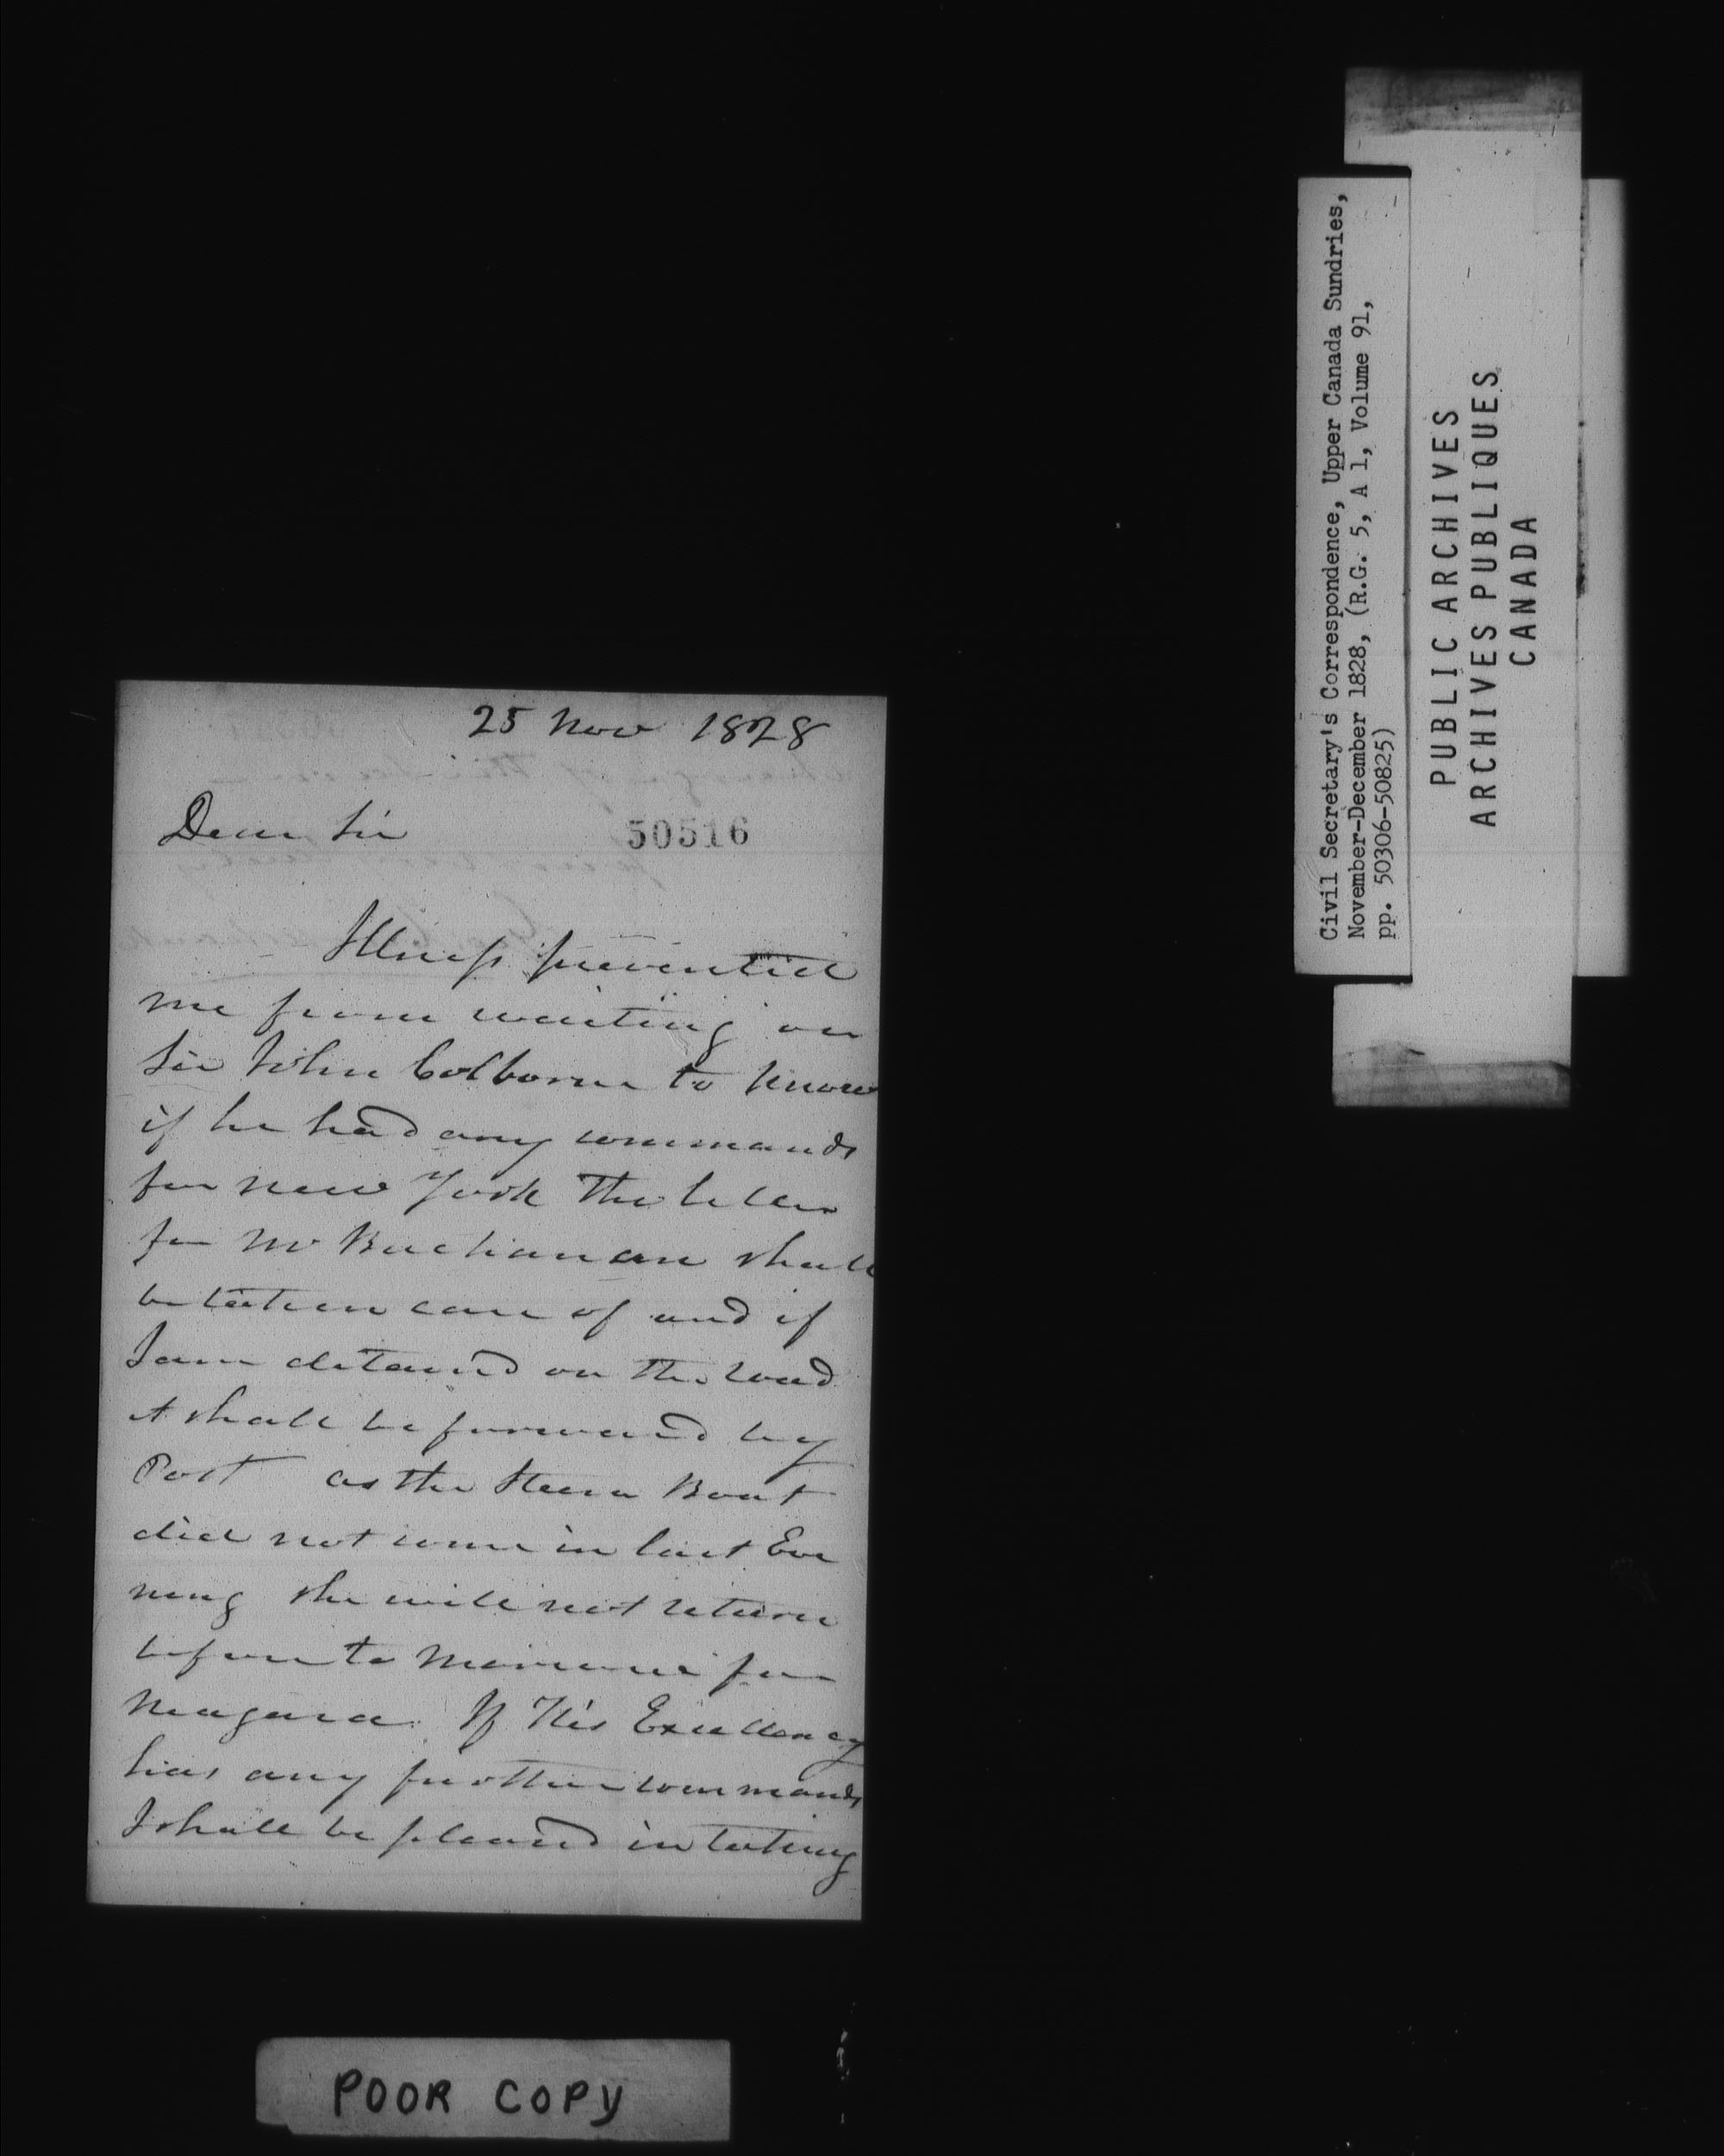 25 Nov 1828
Dear Sir
50516
Illness prevented
me from waiting on
Sir John Colborne to know
if he had any commands
for New York The letter
for Mr Buchanan shall
be taken care of and if
I am detained on the road
it shall be forward by
Post as the Steam Boat
did not come in last Eve
ning she will not return
before to Morrow for
Niagara. If His Excellency
has any further commands
I shall be pleased in taking
POOR COPY
Civil Secretary's Correspondence, Upper Canada Sundries,
November-December 1828, (R.G. 5, A 1, Volume 91,
pp. 50306-50825)
PUBLIC ARCHIVES
ARCHIVES PUBLIQUES
CANADA